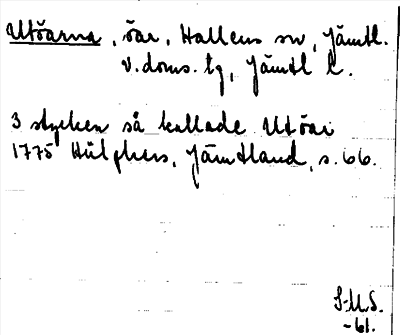 Utöarna, öar, Hallens sn, Jämtl.
v. doms. tg, Jämtl l.
3 stycken så kallade Utöar
1775 Hülphers, Jämtland, s. 66.
S-U.S.
-61.